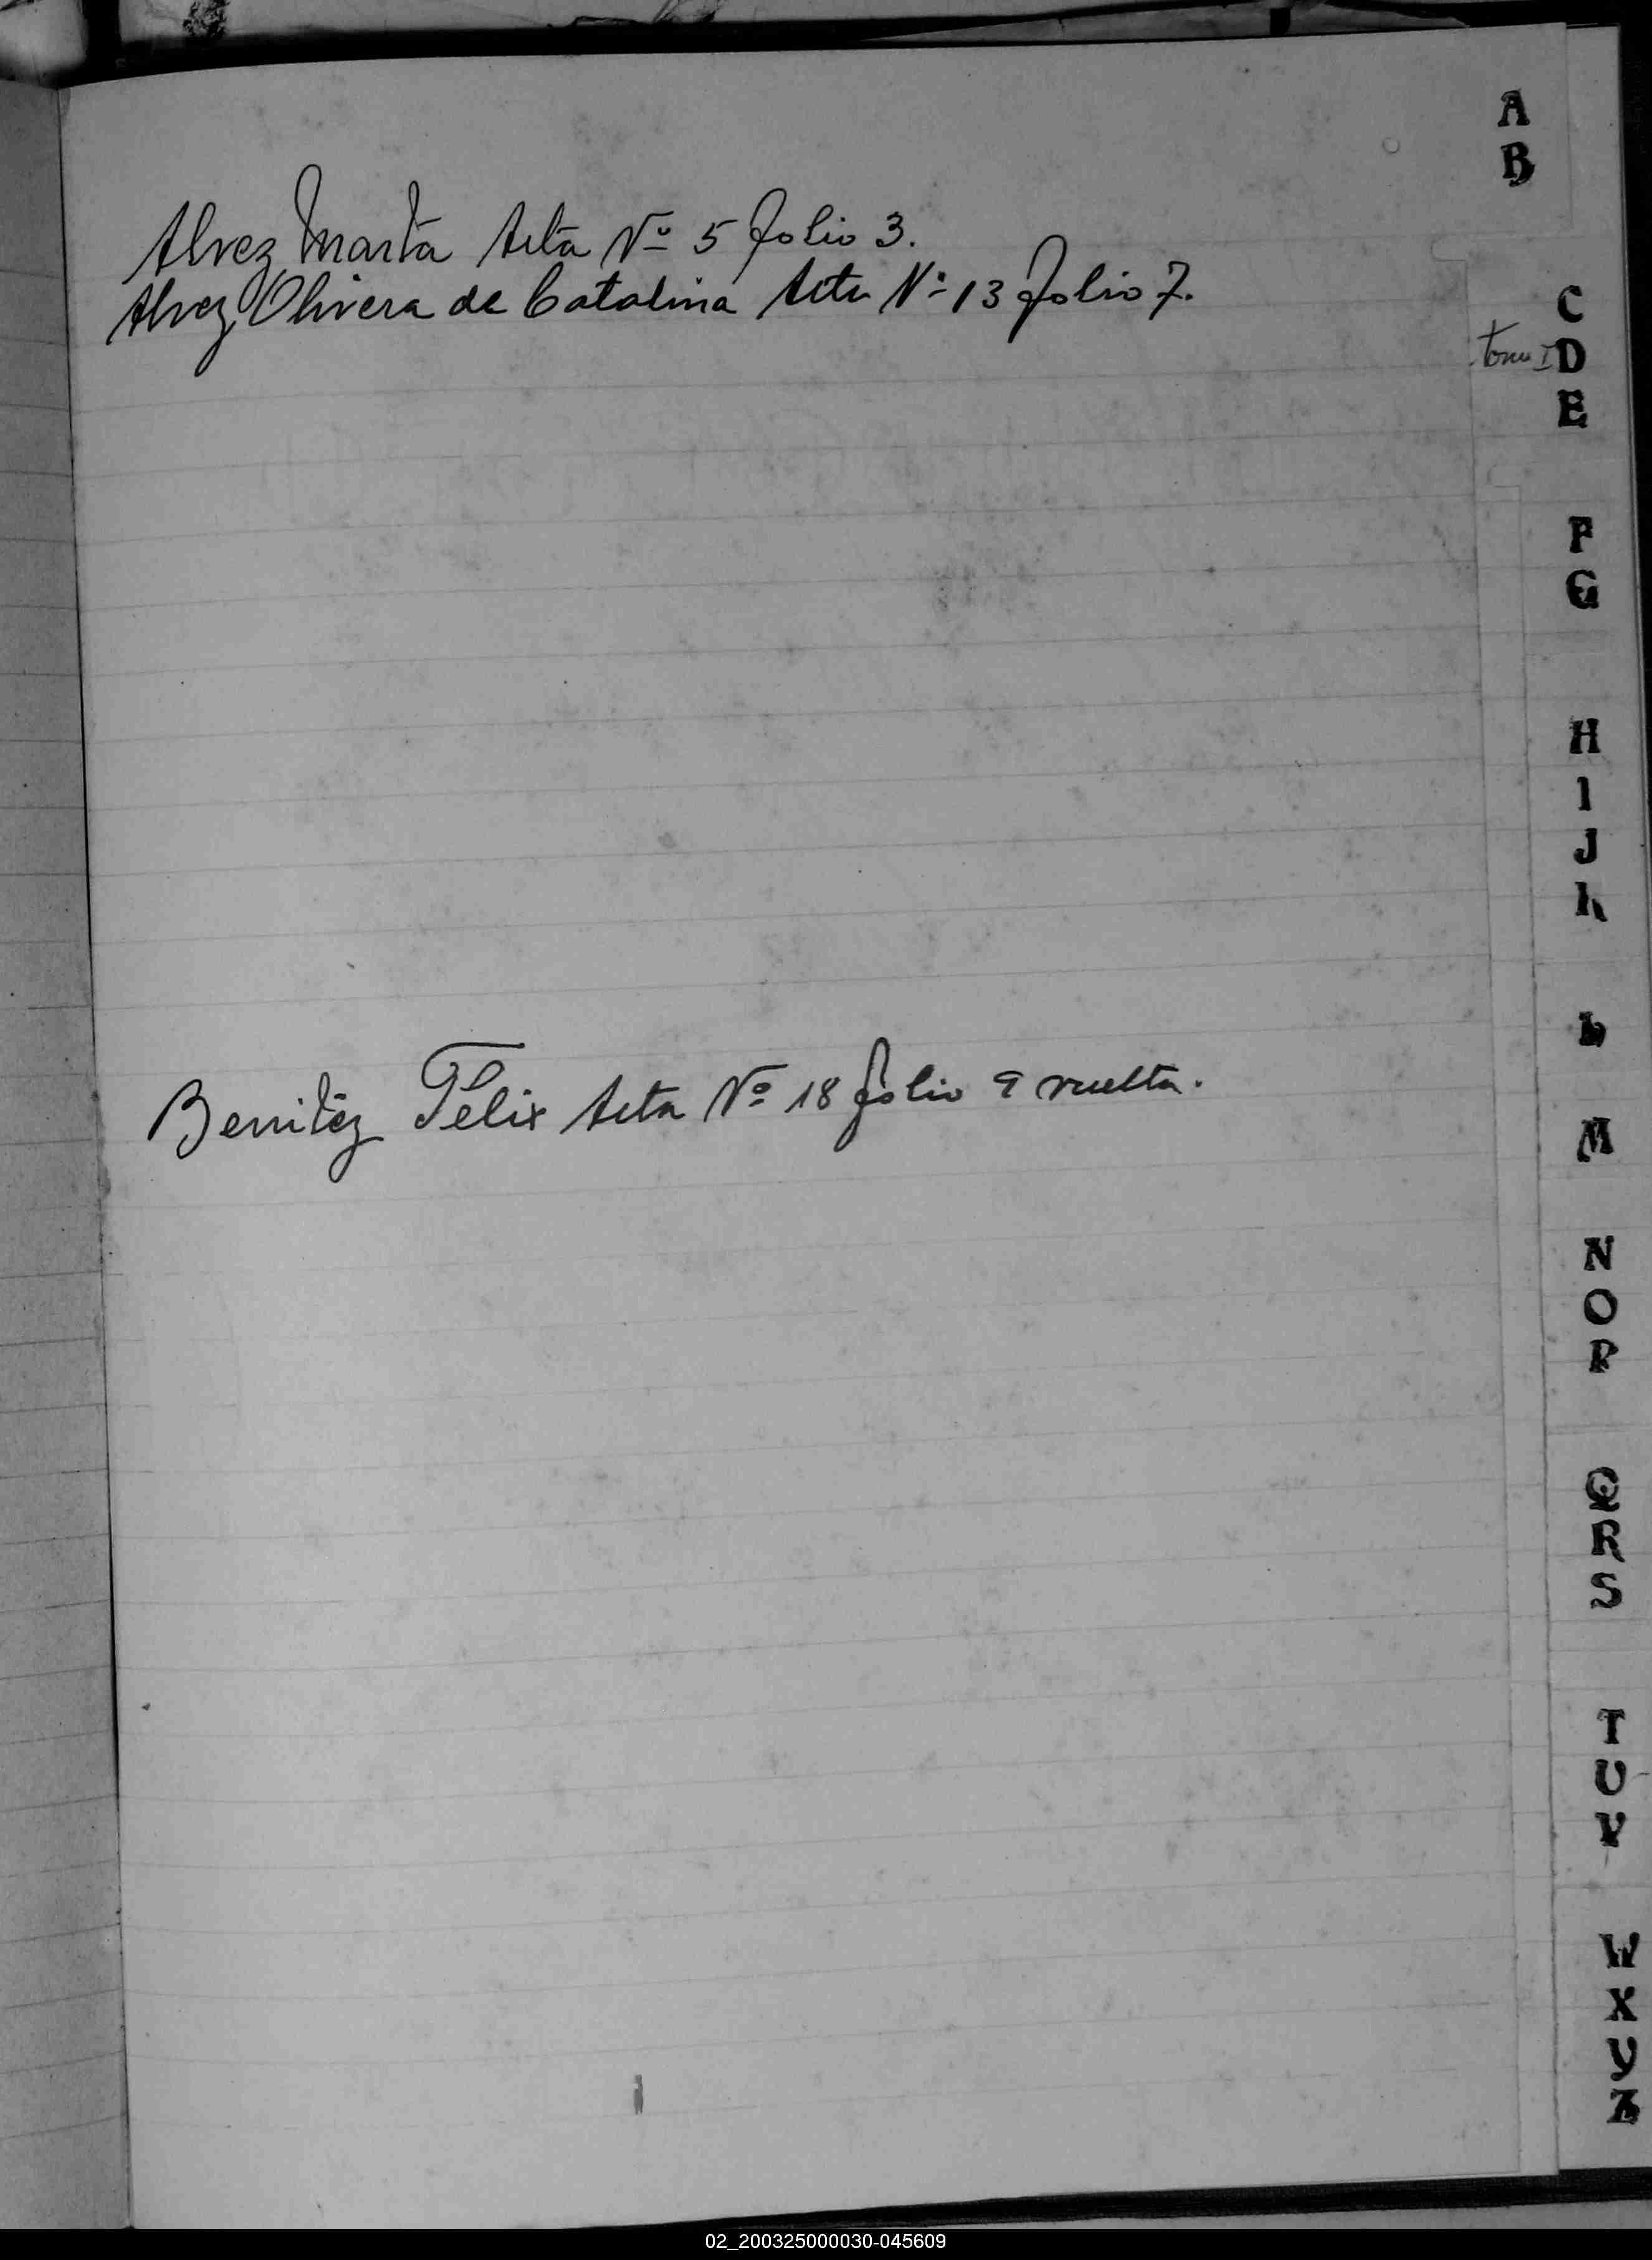 A
B
Alvez Marta Acta Nº 5 folio 3.
Alvez Olivera de Catalina Acta Nº 13 folio 7.
C
tomo I
D
E
F
G
H
I
J
K
L
Benitez Félix Acta Nº 18 folio 9 vuelta.
M
N
O
P
Q
R
S
T
U
V
W
X
Y
Z
02_200325000030-045609